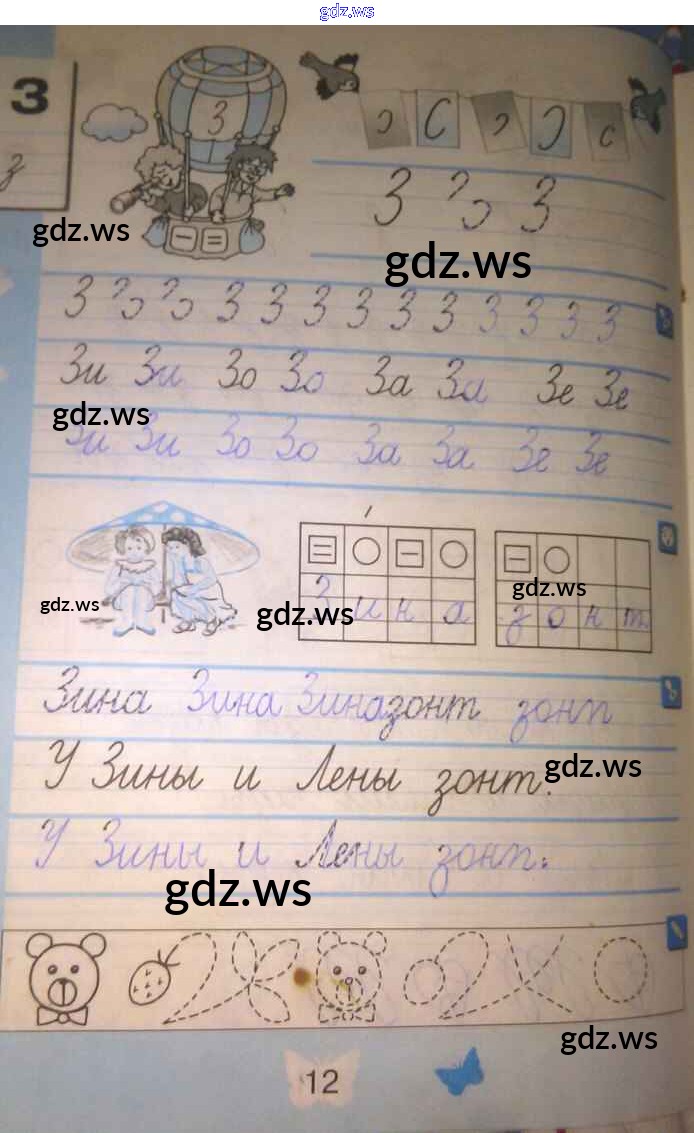 gdz.ws
З
з
З
З З
gdz.ws
gdz.ws
З З З З З З З З З З
Зи Зи Зо Зо За За Зе Зе
gdz.ws
Зи Зи Зо Зо За За Зе Зе
gdz.ws
gdz.ws
gdz.ws
Зина зонт
Зина Зина Зина зонт зонт
У Зины и Лены зонт.
gdz.ws
У Зины и Лены зонт.
gdz.ws
gdz.ws
12